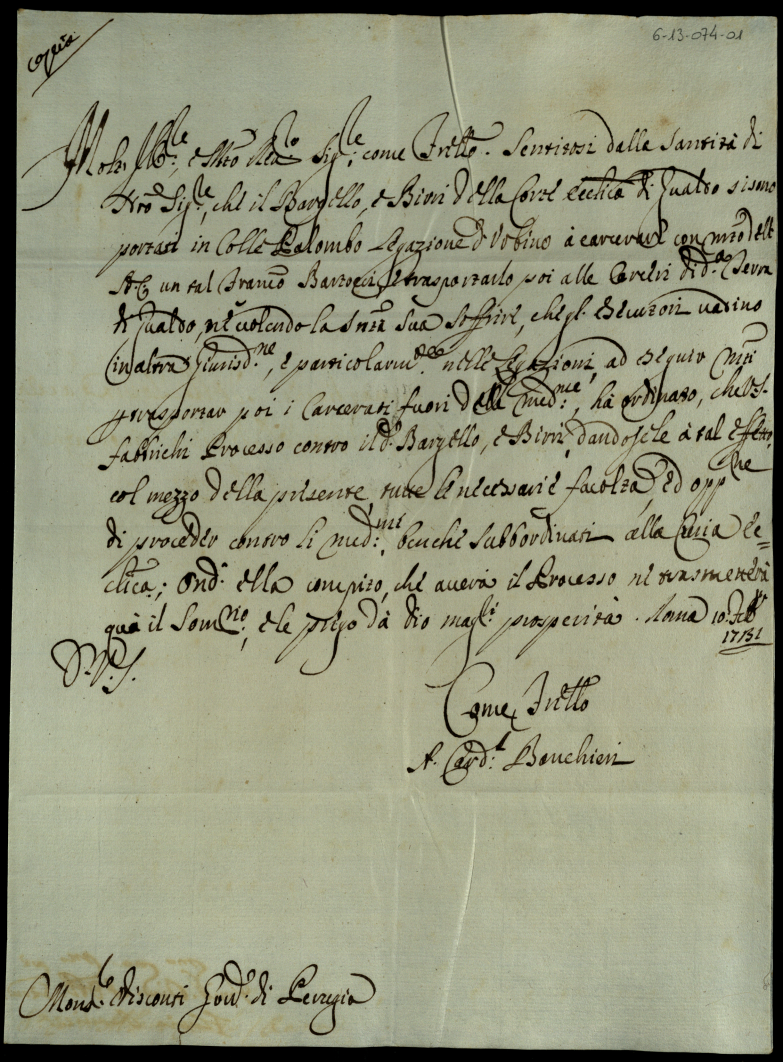 6-13-074-01
copia
Molt' Ill:re, e Mto Rev:do Sig:re, come Frello. Sentitosi dalla Santità di
Nrõ Sig:re, che il Bargello, e Birri della Corte Ecclica di Gualdo si sono
portati in Colle Palombo Legazione d'Urbino à carcerare con mrõ dell'
A.C. un tal Franco Bartocci, e trasportarlo poi alle Carceri di d:a Terra
di Gualdo, ne volendo la Stità Sua soffrire, che gl' esecutori vadino
in altra Giurisd:ne, e particolarm:te nelle Legazioni, ad eseguir mti
p trasportar poi i Carcerati fuori delle med:me, hà ordinato, che VS.
fabbrichi Processo contro il d:o Bargello, e Birri, dandosele à tal effetto,
col mezzo della presente tutte le necessarie facoltà, ed opp:ne
di proceder contro li med:mi, benche subbordinati alla Curia Ec=
clica; Ond' ella compito, che averà il Processo ne trasmetterà
quà il Som:rio, e le prego da Dio mag:ri prosperità. Roma 10. Feb:o
1731
D. V. S.
Come Frello
A. Card:l Banchieri
Mons:re Visconti Gov:re di Perugia